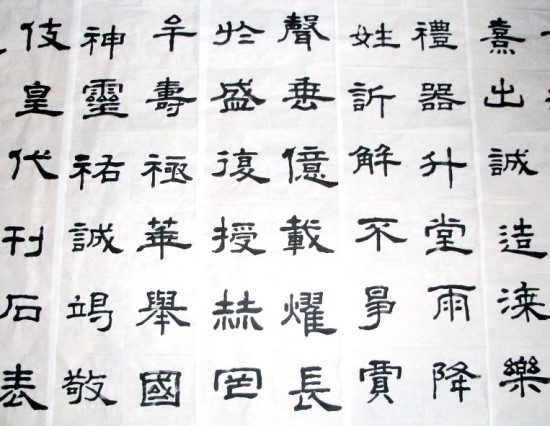 熹出誠造漆樂
禮器升堂雨降
姓訢解不爭賈
聲垂億載燿長
於盛復授赫罔
牟壽極華舉國
神靈祐誠竭敬
伎皇代刊石表